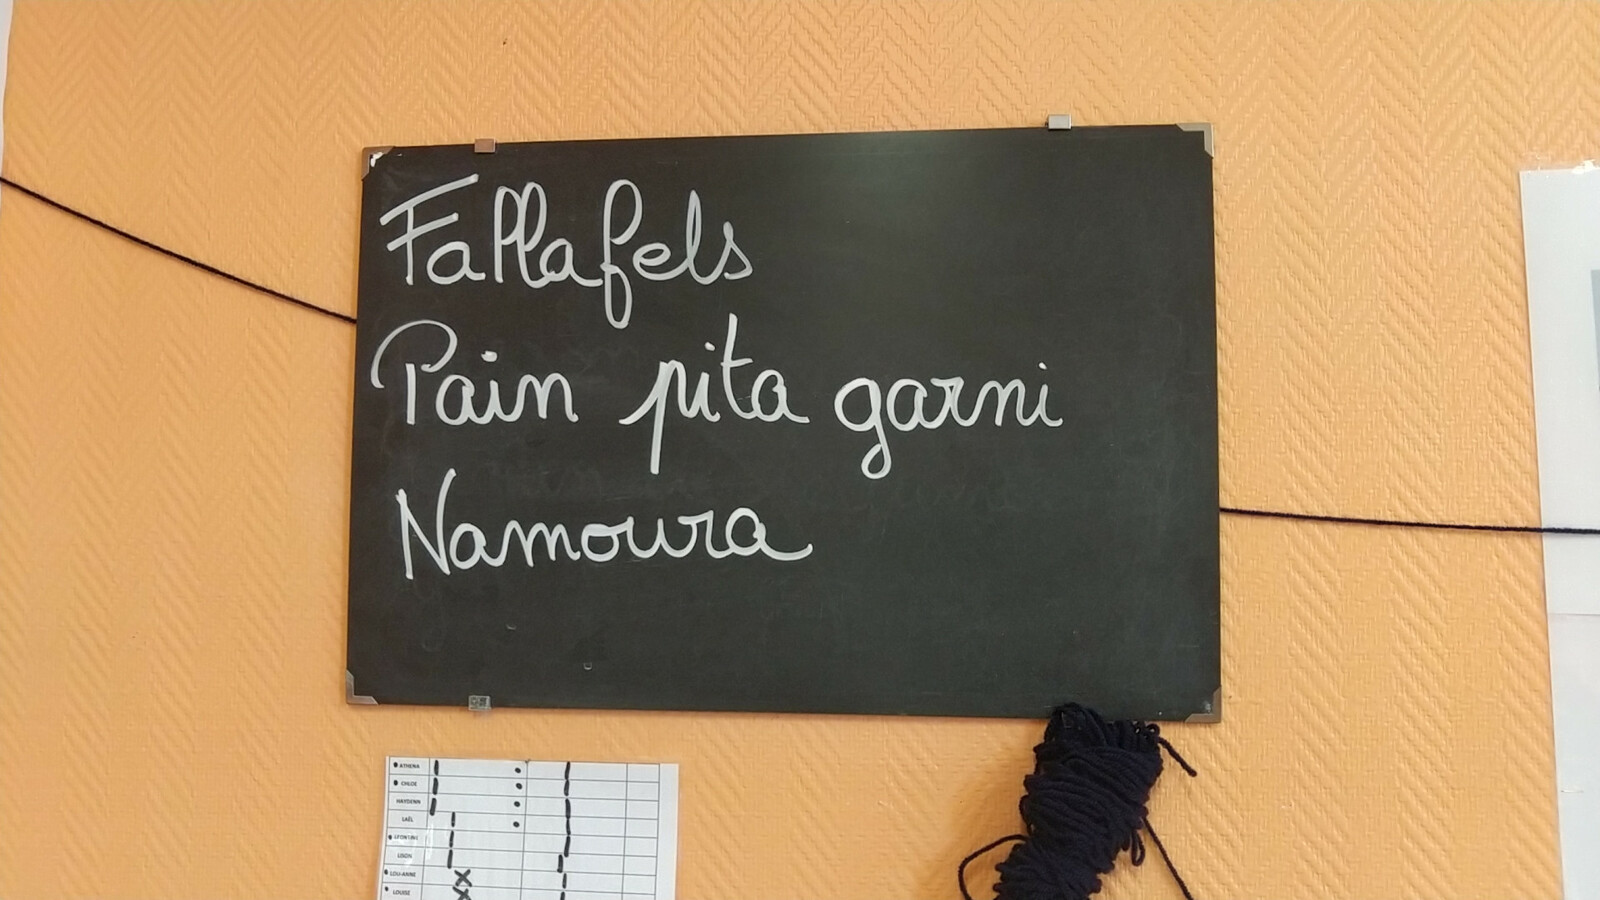 Fallafels
Pain pita garni
Namoura
ATHENA
CHLOE
HAYDENN
LAËL
LEONTINE
LISON
LOU-ANNE
LOUISE